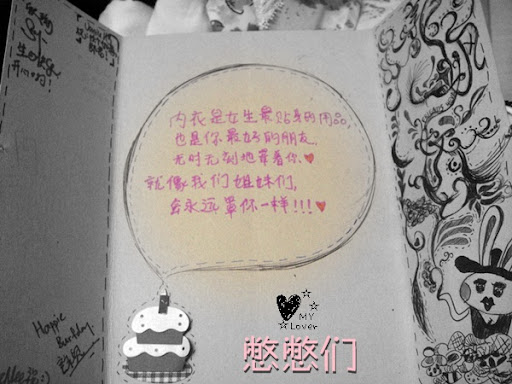 生日快乐
开心哈!
内衣是女生最贴身的用品,
也是你最好的朋友,
无时无刻地罩着你.
就像我们姐妹们,
会永远罩你一样!!!
Happie
Burfday.
MY
Lover
憋憋们